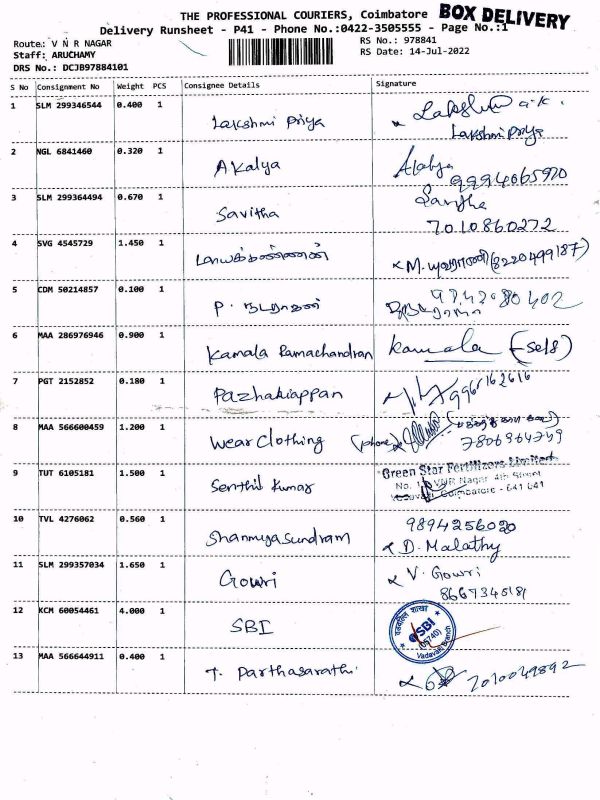 THE PROFESSIONAL COURIERS, Coimbatore BOX DELIVERY
Delivery Runsheet - P41 - Phone No.:0422-3505555 - Page No.:1
Route: V N R NAGAR RS No.: 978841
Staff: ARUCHAMY RS Date: 14-Jul-2022
DRS No.: DCJB97884101
S No Consignment No Weight PCS Consignee Details Signature
1 SLM 299346544 0.400 1 Lakshmi Priya
Lakshmi Priya
2 NGL 6841460 0.320 1 Akalya
9994065920
3 SLM 299364494 0.670 1 Savitha
7010860272
4 SVG 4545729 1.450 1 M. யுவராணி (8220499187)
5 CDM 50214857 0.100 1 P. நடராஜன்
6 MAA 286976946 0.900 1 Kamala Ramachandran Kamala (self)
7 PGT 2152852 0.180 1 Pazhaniappan
8 MAA 566600459 1.200 1 Wear Clothing (phone)
9 TUT 6105181 1.500 1 Senthil Kumar Green Star Fertilizers Limited
VNR Nagar 4th Street
Vadavalli Coimbatore - 641 041
10 TVL 4276062 0.560 1 Shanmugasundram 9894256020
D. Malathy
11 SLM 299357034 1.650 1 Gowri V. Gowri
12 KCM 60054461 4.000 1 SBI SBI
Vadavalli Branch
13 MAA 566644911 0.400 1 T. Parthasarathi 7010049892